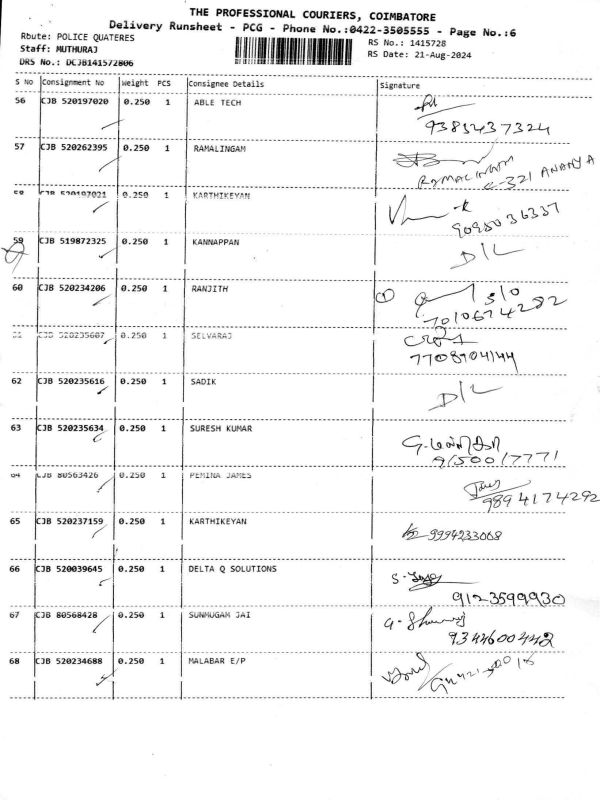 THE PROFESSIONAL COURIERS, COIMBATORE
Delivery Runsheet - PCG - Phone No.:0422-3505555 - Page No.:6
Rbute: POLICE QUATERES
Staff: MUTHURAJ
DRS No.: DCJB141572806
RS No.: 1415728
RS Date: 21-Aug-2024
S No Consignment No Weight PCS Consignee Details Signature
56 CJB 520197020 0.250 1 ABLE TECH
9385437324
57 CJB 520262395 0.250 1 RAMALINGAM
RAMALINGAM
C-321 ANANYA
58 CJB 520197021 0.250 1 KARTHIKEYAN
9095036337
59 CJB 519872325 0.250 1 KANNAPPAN
D/L
60 CJB 520234206 0.250 1 RANJITH
① S/O
7010674282
61 CJB 520235607 0.250 1 SELVARAJ
7708704144
62 CJB 520235616 0.250 1 SADIK
D/L
63 CJB 520235634 0.250 1 SURESH KUMAR
9150017771
64 CJB 80563426 0.250 1 PEMINA JAMES
9894174292
65 CJB 520237159 0.250 1 KARTHIKEYAN
9994233068
66 CJB 520039645 0.250 1 DELTA Q SOLUTIONS
9123599930
67 CJB 80568428 0.250 1 SUNMUGAM JAI
9344600442
68 CJB 520234688 0.250 1 MALABAR E/P